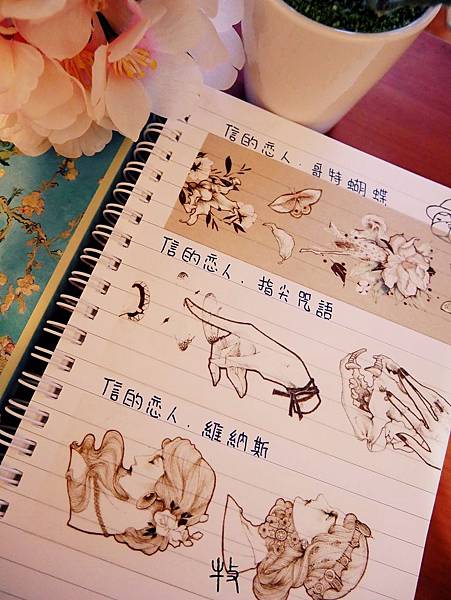 信的恋人．哥特蝴蝶
信的恋人．指尖咒語
信的恋人．維納斯
牧